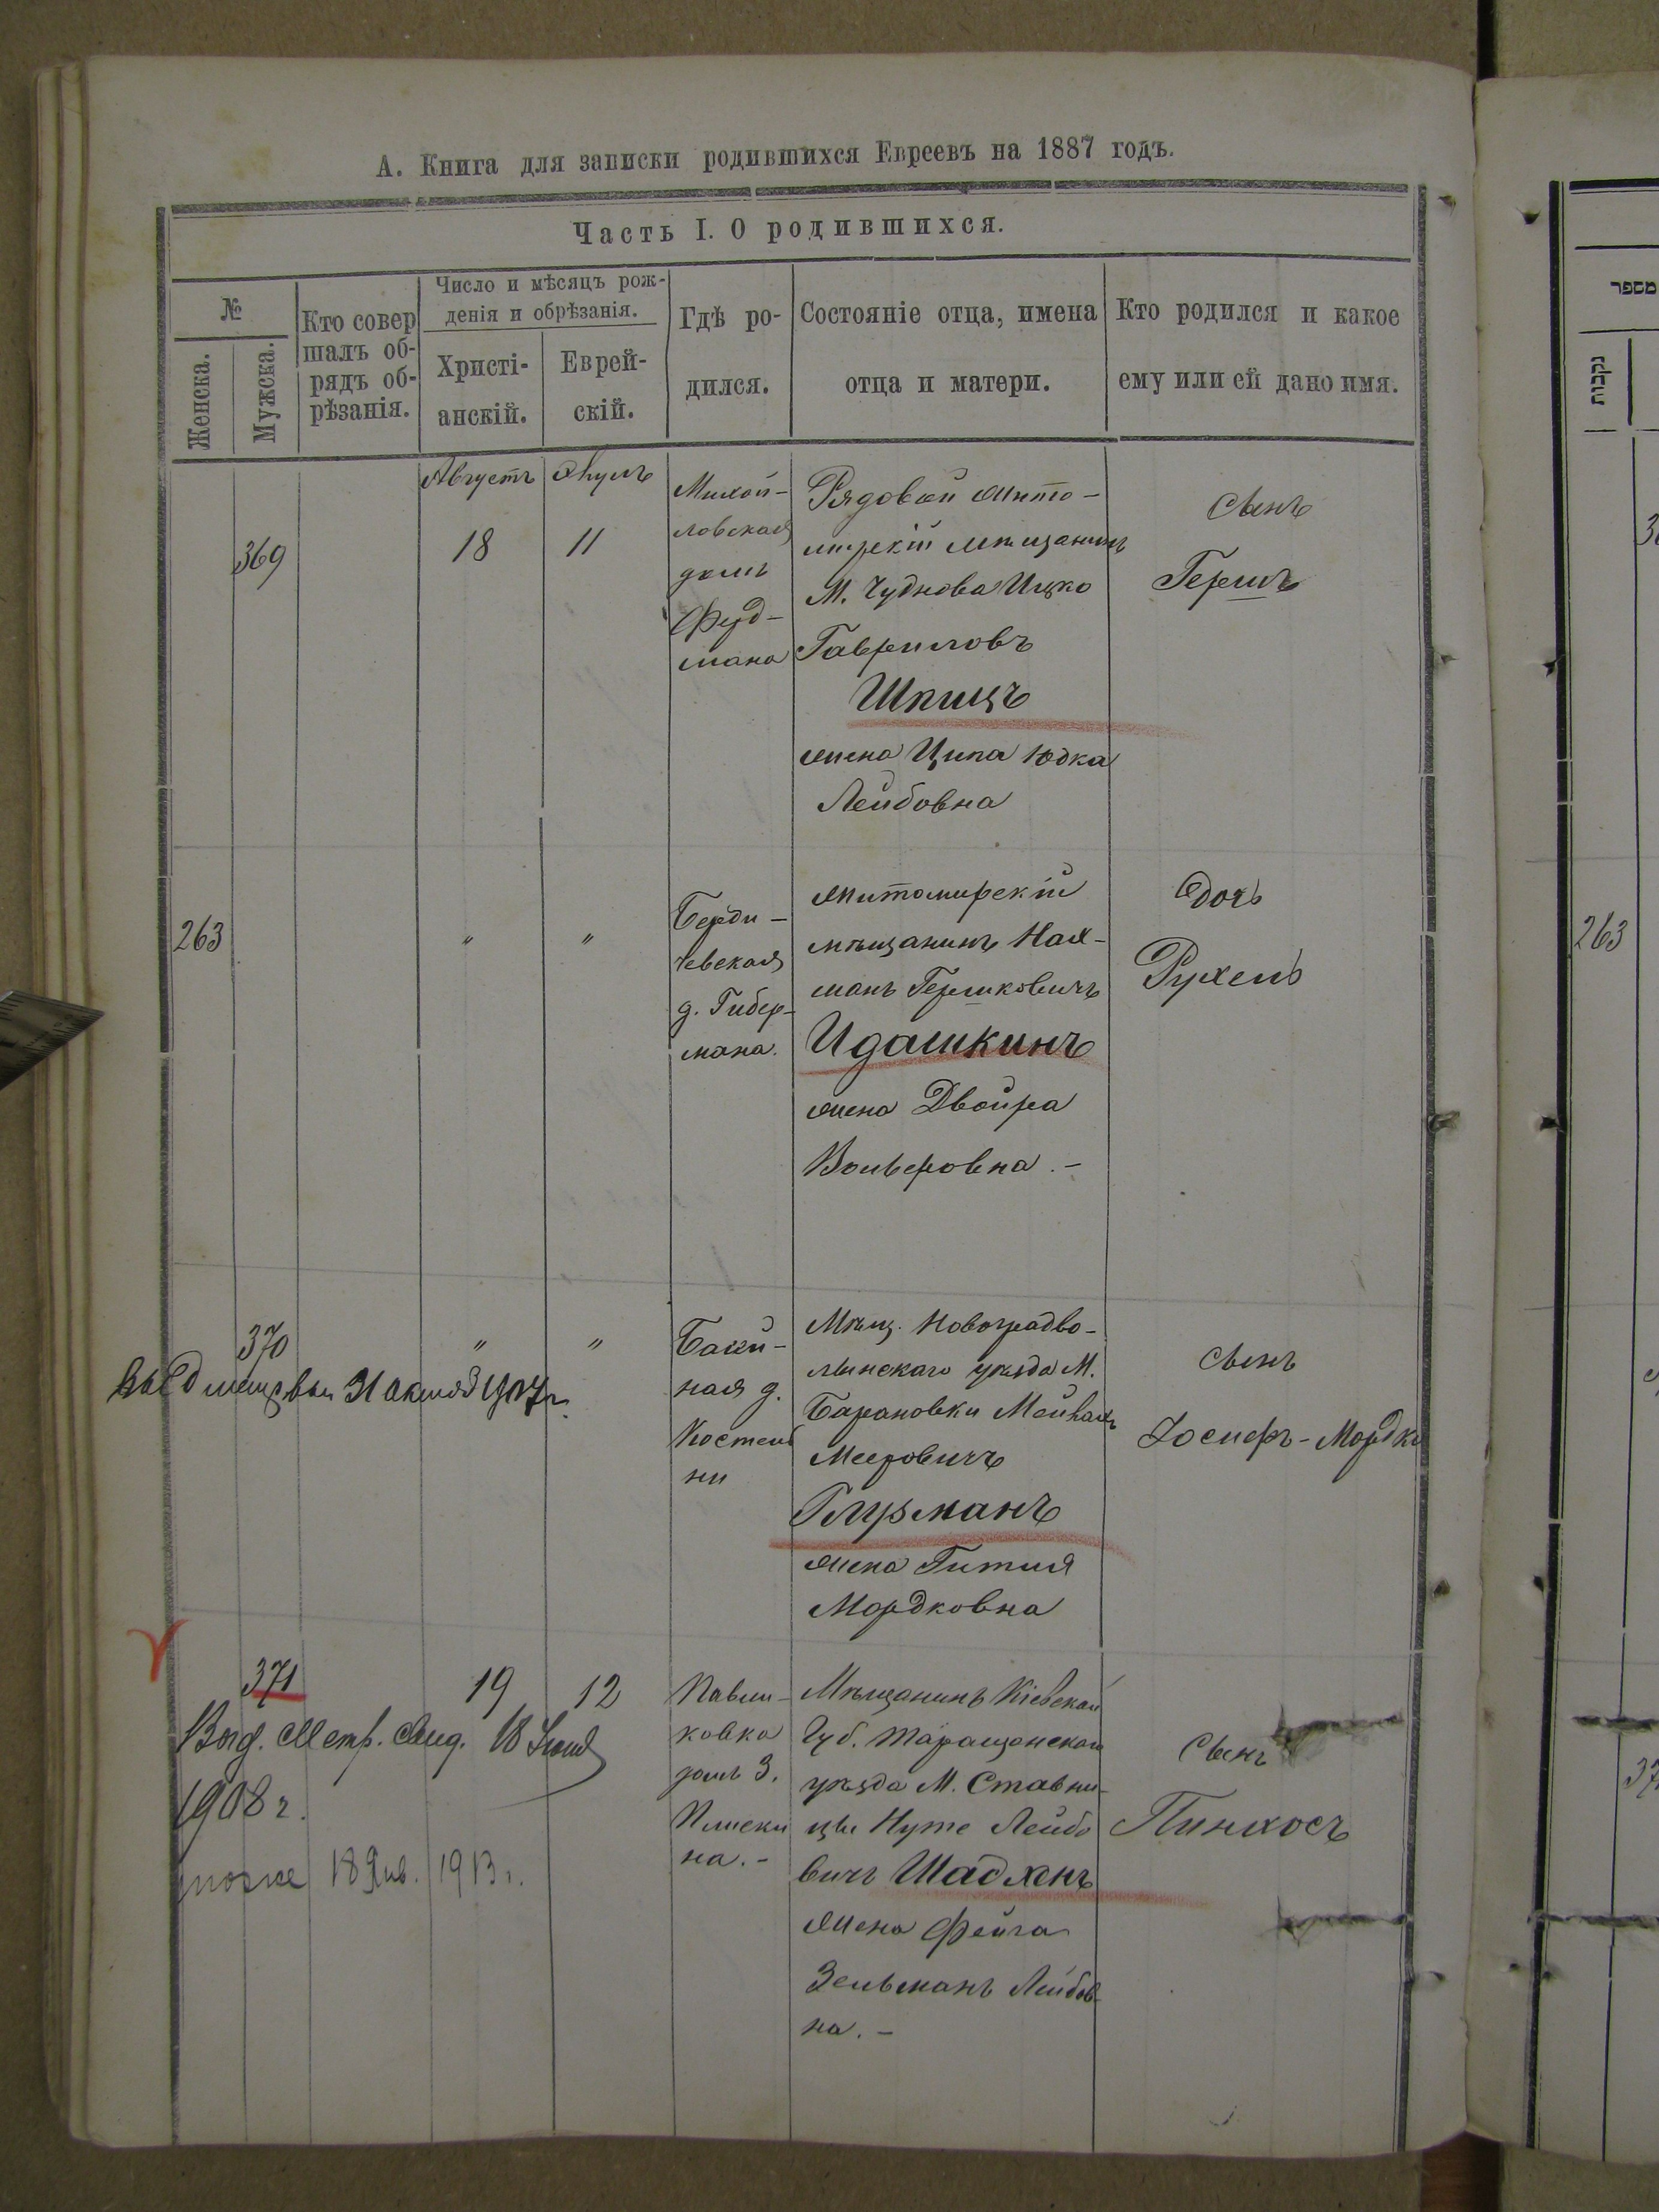 А. Книга для записки родившихся Евреевъ на 1887 годъ.
Часть I. О родившихся.
№
Женска.
Мужска.
Кто совер
шалъ об-
рядъ об-
рѣзанія.
Число и мѣсяцъ рож-
денія и обрѣзанія.
Христі-
анскій.
Еврей-
скій.
Гдѣ ро-
дился.
Состояніе отца, имена
отца и матери.
Кто родился и какое
ему или ей дано имя.
369
Августъ
18
11
ловская
домъ
мана
Рядовой Жито-
мирскій мѣщанинъ
М. Чуднова Ицко
Гавриловъ
Шпицъ
жена Ципа Юдка
Лейбовна
Сынъ
Гершъ
263
"
"
Берди-
чевская
д. Гибер-
мана.
Житомирскій
мѣщанинъ Нах-
манъ Гершковичъ
Идашкинъ
жена Двойра
Вольфовна.-
Дочь
Рухель
370
"
"
ная д.
ни
Мѣщ. Новоградво-
лынскаго уѣзда М.
Барановки
Мееровичъ
Глузманъ
жена Гитля
Мордковна
Сынъ
Іосифъ-Мордко
371
19
12
Выд. Метр. Свид. 18 Іюня
1908 г.
тоже 18 Янв. 1913 г.
Павли-
ковка
домъ З.
Плиски
на.-
Мѣщанинъ Кіевской
Губ. Таращанскаго
уѣзда М. Ставни-
цы Нуте Лейбо
вичъ Шадхенъ
Жена Фейга
Зельманъ Лейбов-
на.-
Сынъ
Пинхосъ
מספר
נקבות
263